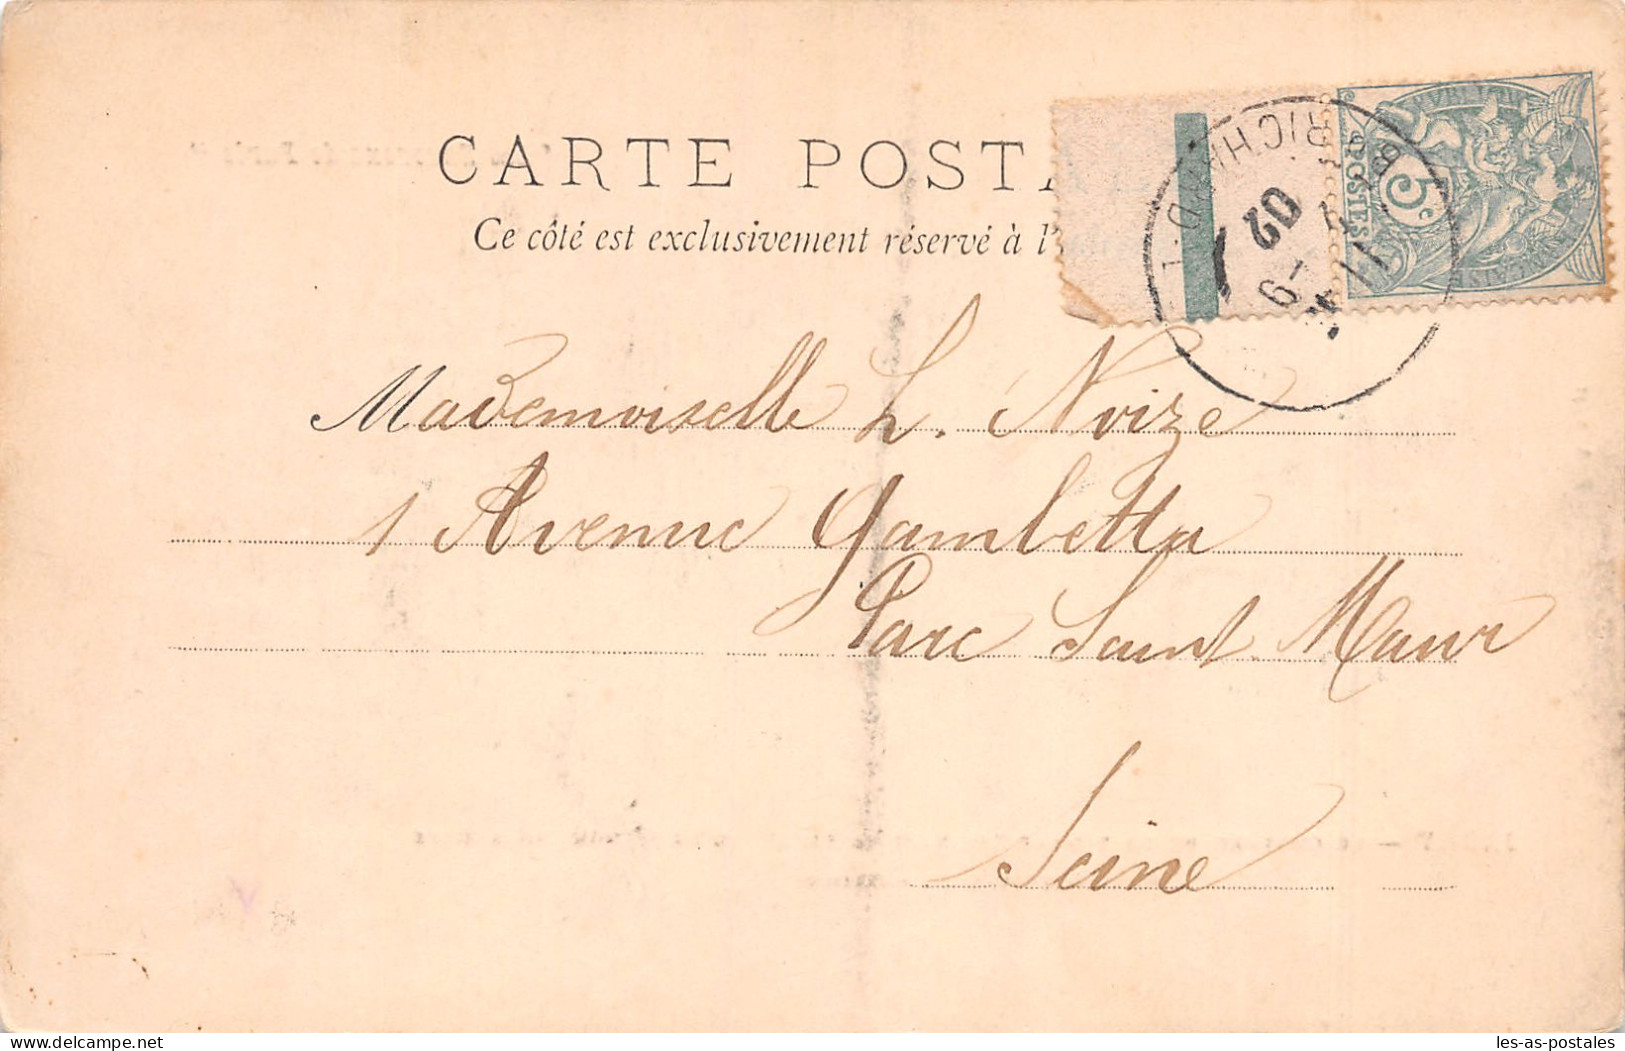 CARTE POSTA
Ce côté est exclusivement réservé à l'
POSTES
5c
RICHARD-L
02
Mademoiselle L. Noize
1 Avenue Gambetta
Parc Saint Maur
Seine
les-as-postales